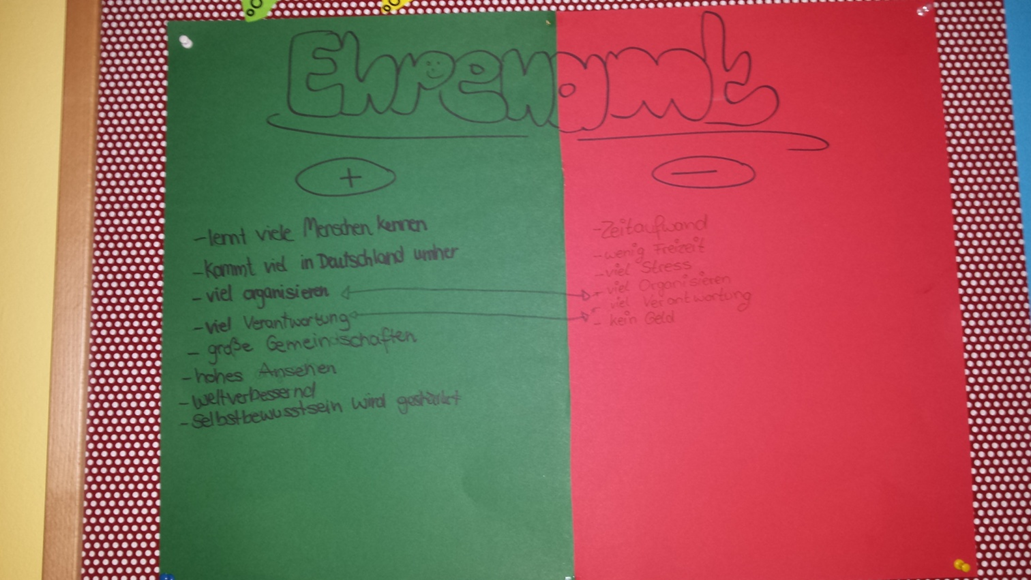 Ehrenamt
+
- lernt viele Menschen kennen
- kommt viel in Deutschland umher
- viel organisieren
- viel Verantwortung
- große Gemeindschaften
- hohes Ansehen
- weltverbessernd
- Selbstbewusstsein wird gestärkt
−
- Zeitaufwand
- wenig Freizeit
- viel Stress
- viel Organisieren
- viel Verantwortung
- kein Geld